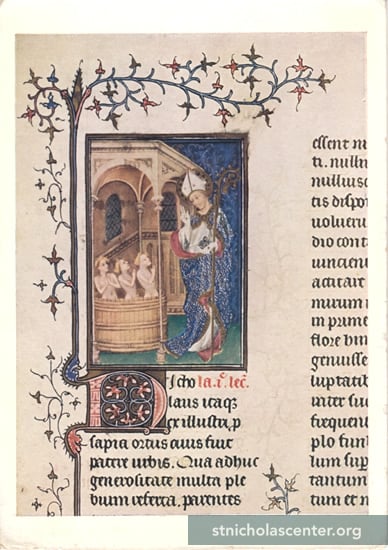 Nicho la. i. lec.
laus itaq
ex illustri, p
sapia ortus ciuis fuit
patere urbis. Qua adhuc
generositate multa ple
bium referta, parentes
essent
ti. nullu
nulliusc
tis dispo
uolueru
dio cont
uincient
actitare
murum
in prime
flore bin
genuisse
luptatib
inter suc
frequen
plo fun
lum sup
tantum
tum et
stnicholascenter.org